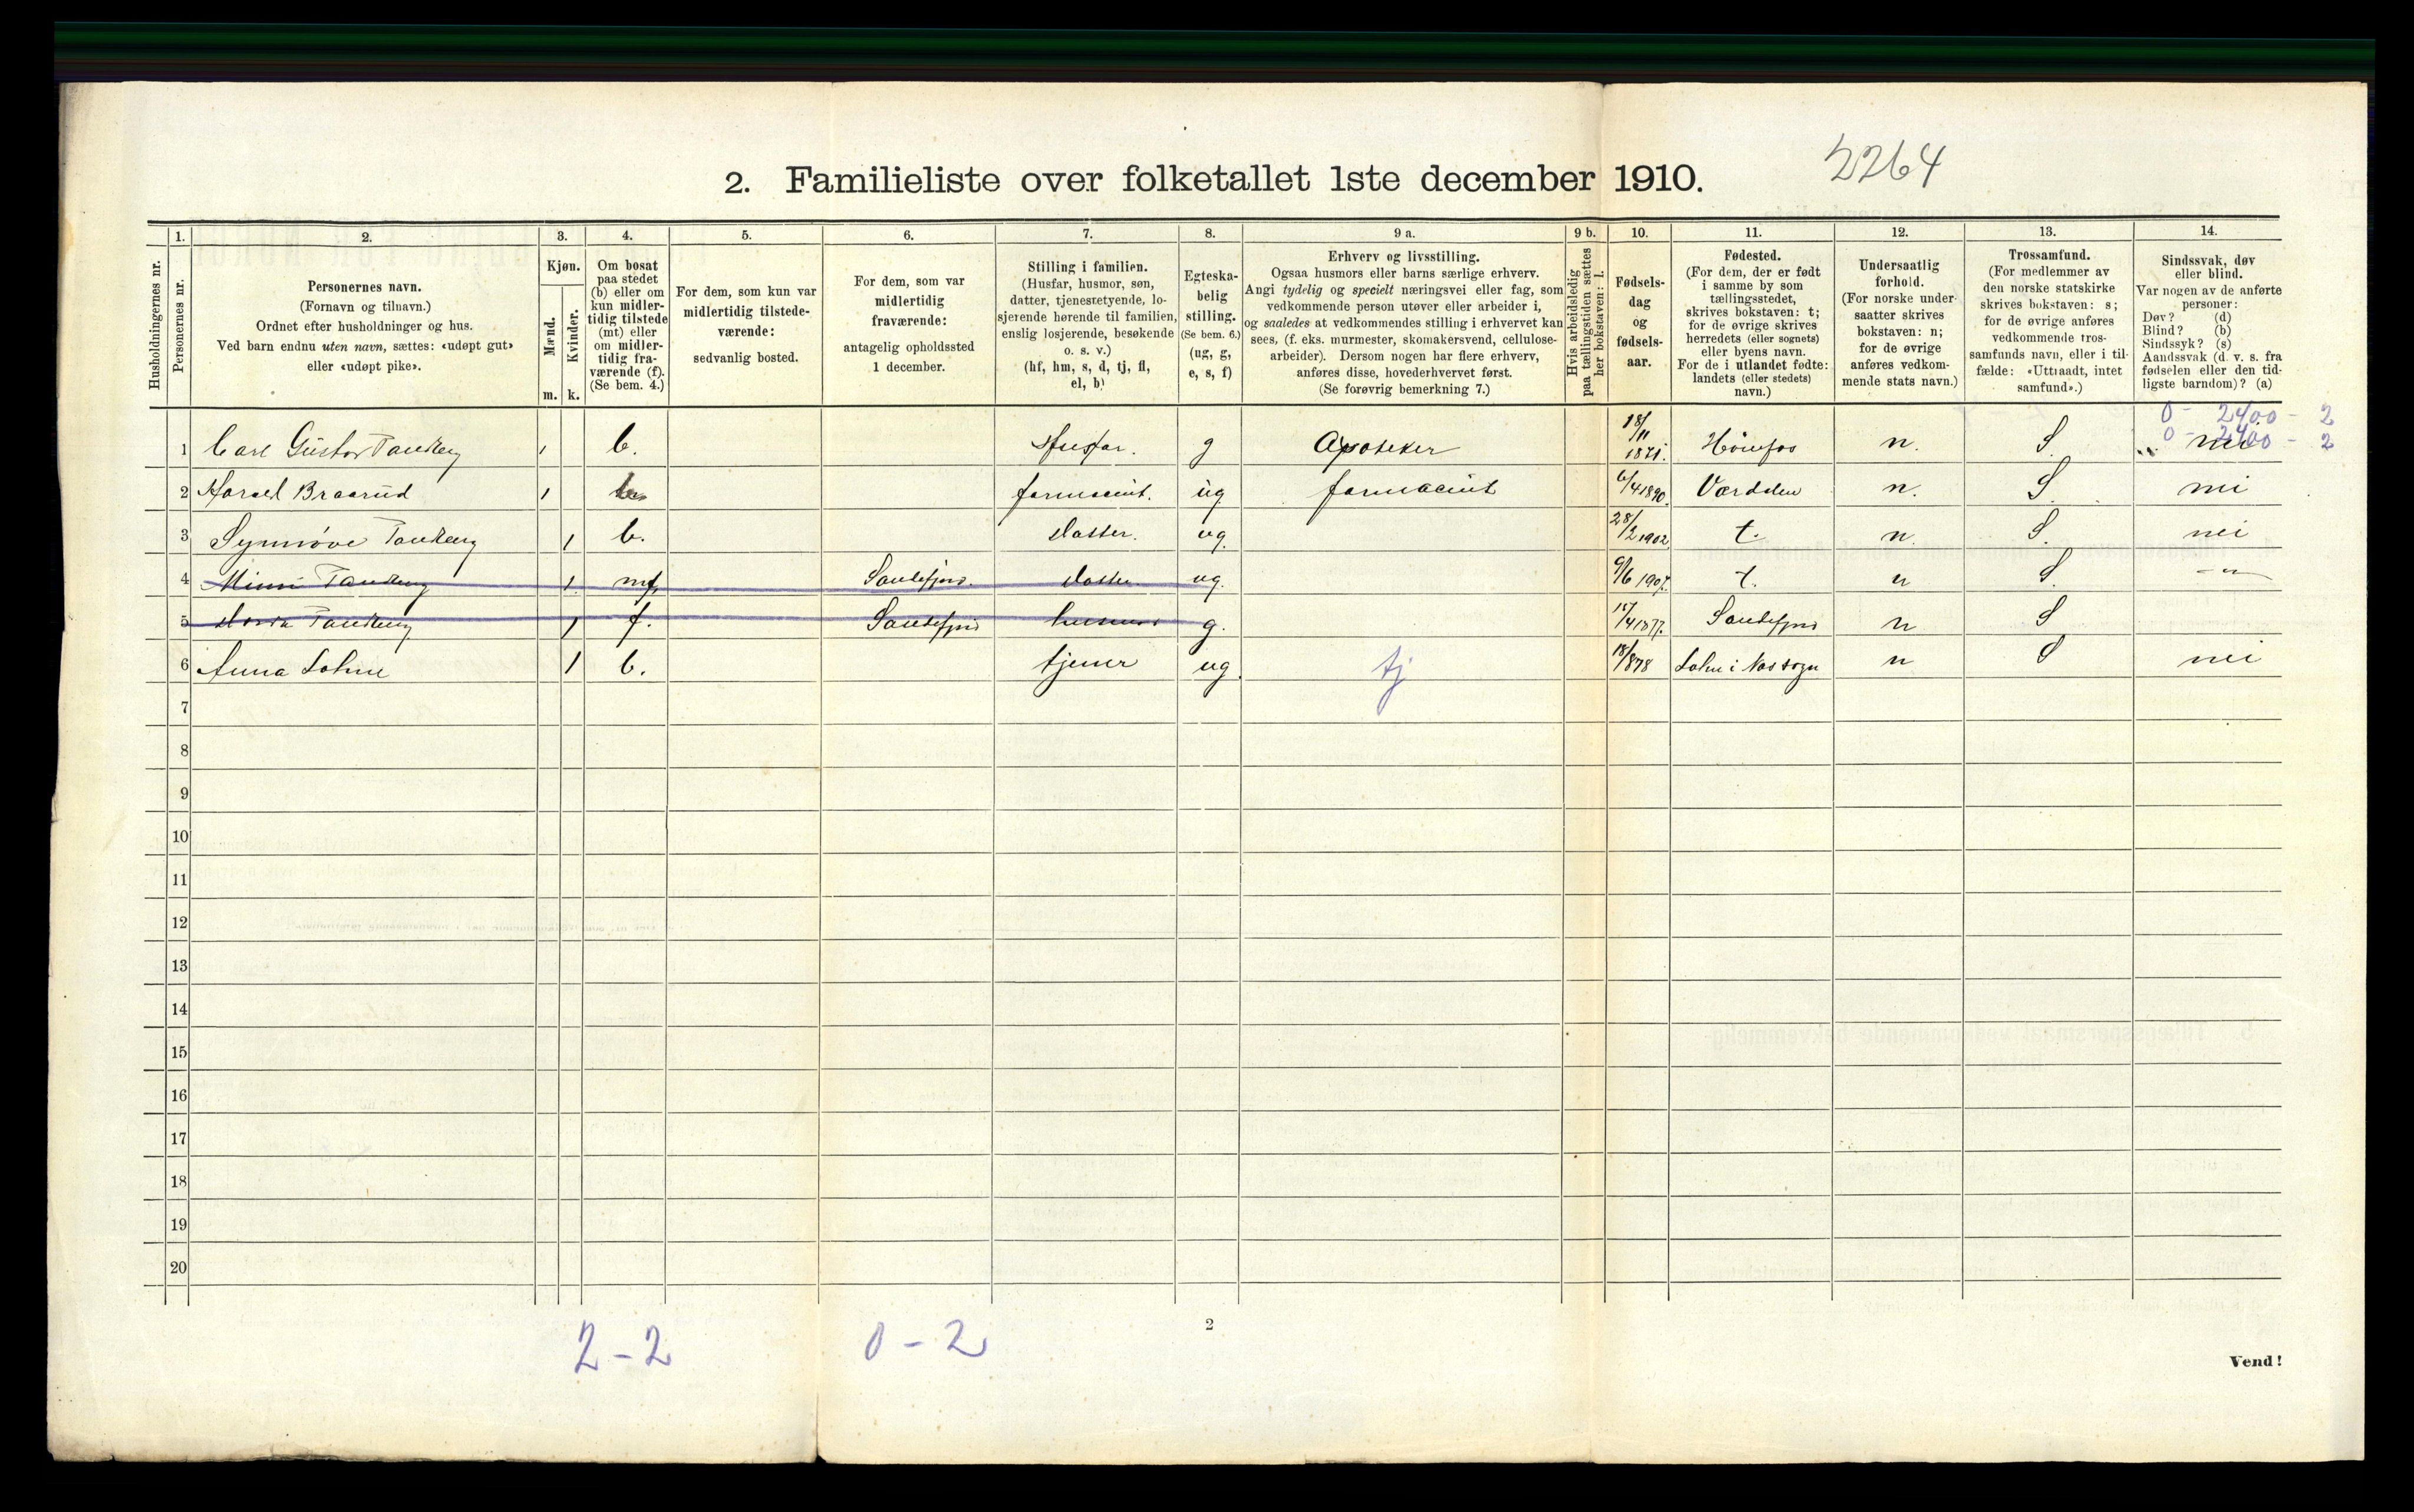 2264
2. Familieliste over folketallet 1ste december 1910.
Husholdningernes nr.
1.
Personernes nr.
2.
Personernes navn.
(Fornavn og tilnavn.)
Ordnet efter husholdninger og hus.
Ved barn endnu uten navn, sættes: «udøpt gut»
eller «udøpt pike».
3.
Kjøn.
Mænd.
Kvinder.
m. k.
4.
Om bosat
paa stedet
(b) eller om
kun midler-
tidig tilstede
(mt) eller
om midler-
tidig fra-
værende (f).
(Se bem. 4.)
5.
For dem, som kun var
midlertidig tilstede-
værende:
sedvanlig bosted.
6.
For dem, som var
midlertidig
fraværende:
antagelig opholdssted
1 december.
7.
Stilling i familien.
(Husfar, husmor, søn,
datter, tjenestetyende, lo-
sjerende hørende til familien,
enslig losjerende, besøkende
o. s. v.)
(hf, hm, s, d, tj, fl,
el, b)
8.
Egteska-
belig
stilling.
(Se bem. 6.)
(ug, g,
e, s, f)
9 a.
Erhverv og livsstilling.
Ogsaa husmors eller barns særlige erhverv.
Angi tydelig og specielt næringsvei eller fag, som
vedkommende person utøver eller arbeider i,
og saaledes at vedkommendes stilling i erhvervet kan
sees, (f. eks. murmester, skomakersvend, cellulose-
arbeider). Dersom nogen har flere erhverv,
anføres disse, hovederhvervet først.
(Se forøvrig bemerkning 7.)
9 b.
Hvis arbeidsledig
paa tællingstiden sættes
her bokstaven: l.
10.
Fødsels-
dag
og
fødsels-
aar.
11.
Fødested.
(For dem, der er født
i samme by som
tællingsstedet,
skrives bokstaven: t;
for de øvrige skrives
herredets (eller sognets)
eller byens navn.
For de i utlandet fødte:
landets (eller stedets)
navn.)
12.
Undersaatlig
forhold.
(For norske under-
saatter skrives
bokstaven: n;
for de øvrige
anføres vedkom-
mende stats navn.)
13.
Trossamfund.
(For medlemmer av
den norske statskirke
skrives bokstaven: s;
for de øvrige anføres
vedkommende tros-
samfunds navn, eller i til-
fælde: «Uttraadt, intet
samfund».)
14.
Sindssvak, døv
eller blind.
Var nogen av de anførte
personer:
Døv? (d)
Blind? (b)
Sindssyk? (s)
Aandssvak (d. v. s. fra
fødselen eller den tid-
ligste barndom)? (a)
0 - 2400 - 2
0 - 2400 - 2
1 Carl Gustav Tandberg 1 b. Husfar. g Apoteker 18/11 1871. Hönefos n. S. nei
2 Harald Braarud 1 farmaceut. ug farmaceut 6/4 1890. n. S. nei
3 Synnöve Tandberg 1 b. datter. ug. 28/2 1902 t. n. S. nei
4 Mimi Tandberg 1 mf. Sandefjord. datter ug. 9/6 1907. t. n S. - " -
5 Tandberg 1 f. Sandefjord husmor g. 15/4 1877. Sandefjord n S
6 Anna Lohne 1 b. tjener ug. tj 18/8 78 Lohne i Nas sogn n S nei
7
8
9
10
11
12
13
14
15
16
17
18
19
20
2 - 2 0 - 2
2
Vend!